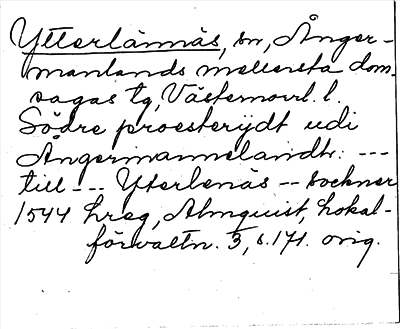 Ytterlännäs, sn, Ånger-
manlands mellersta dom-
sagas tg, Västernorrl. l.
Södre proesterijdt udi
Angermannelandtr: ---
till --- Ytterlenäs -- sockner
1544 hreg, Almquist, Lokal-
förvaltn. 3, s. 171. orig.